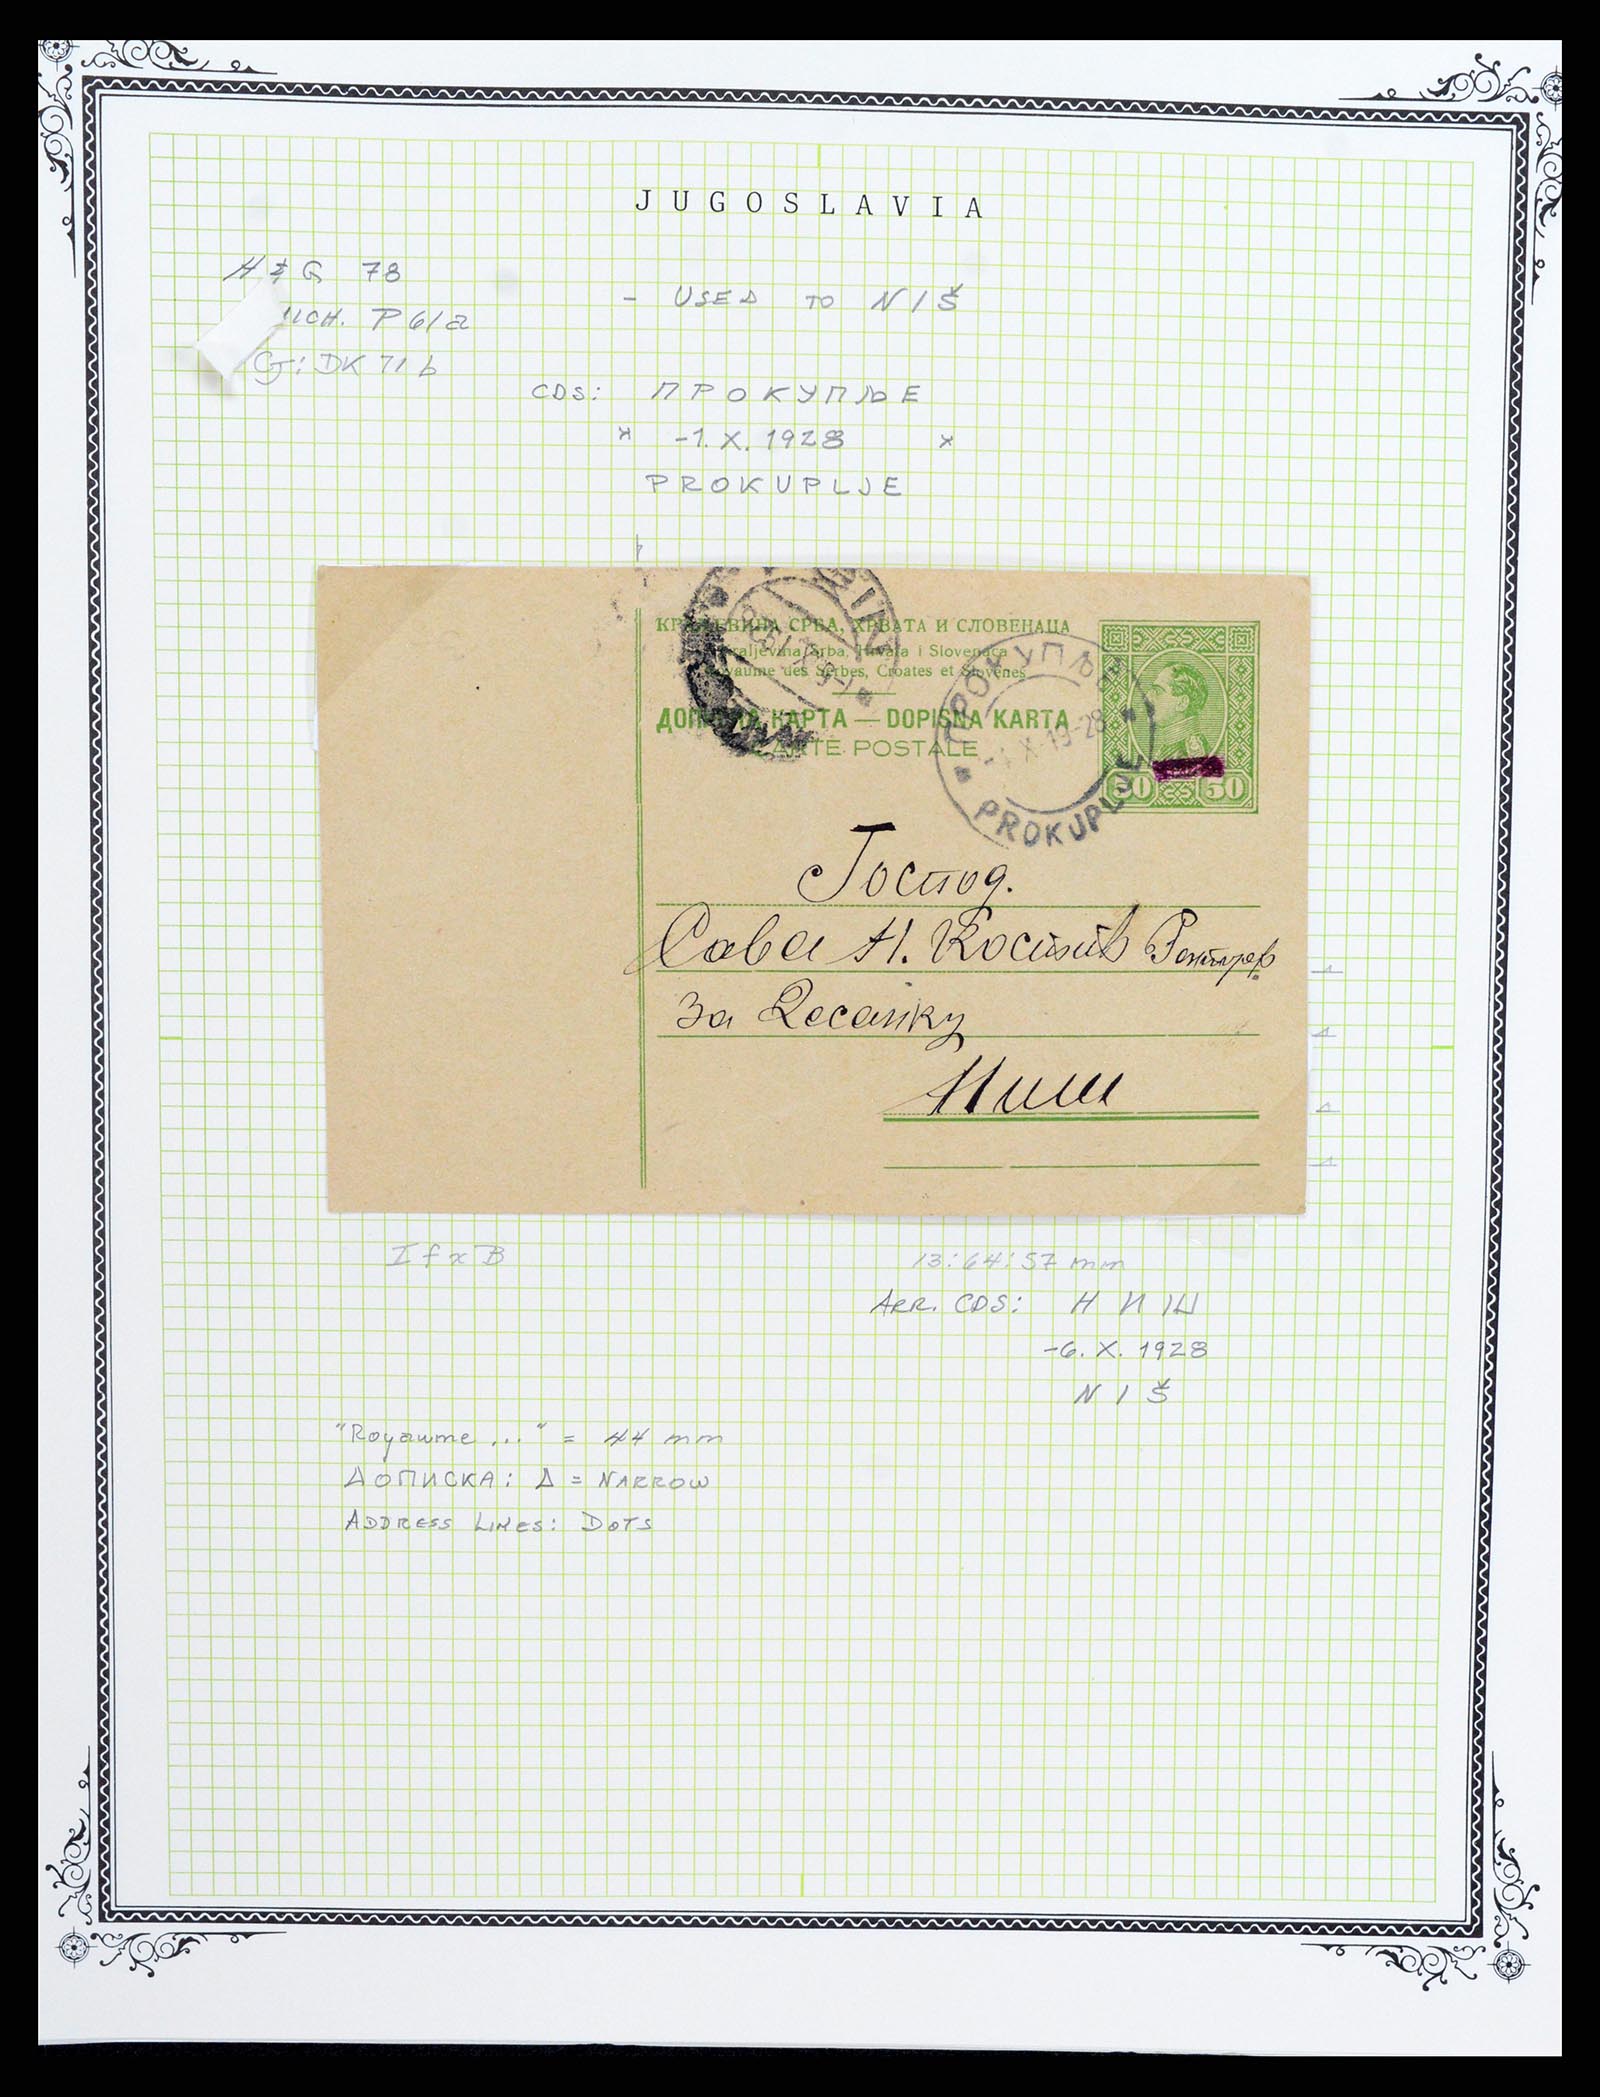 JUGOSLAVIA
H & G 78
- USED TO NIŠ
MICH. P 61a
G: DK 71 b
CDS: ПРОКУПЉЕ
* -1. X. 1928 *
PROKUPLJE
КРАЉЕВИНА СРБА, ХРВАТА И СЛОВЕНАЦА
Kraljevina Srba, Hrvata i Slovenaca
Royaume des Serbes, Croates et Slovènes
ДОПИСНА КАРТА — DOPISNA KARTA
CARTE POSTALE
ПРОКУПЉЕ
-1 X 19-28
PROKUPLJE
50 50
Господ.
Сава Н. Костић
за Десанку
Ниш
I f x B
13:64:57 mm
ARR. CDS: НИШ
-6. X. 1928
NIŠ
"Royaume ..." = 44 mm
ДОПИСКА: Д = NARROW
ADDRESS LINES: DOTS